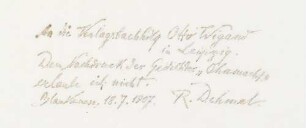 An die Verlagsbuchhdlg Otto Wigand
in Leipzig.
Den Nachdruck des Gedichtes
erlaube ich nicht.
Blankenese, 18.7.1907. R. Dehmel.